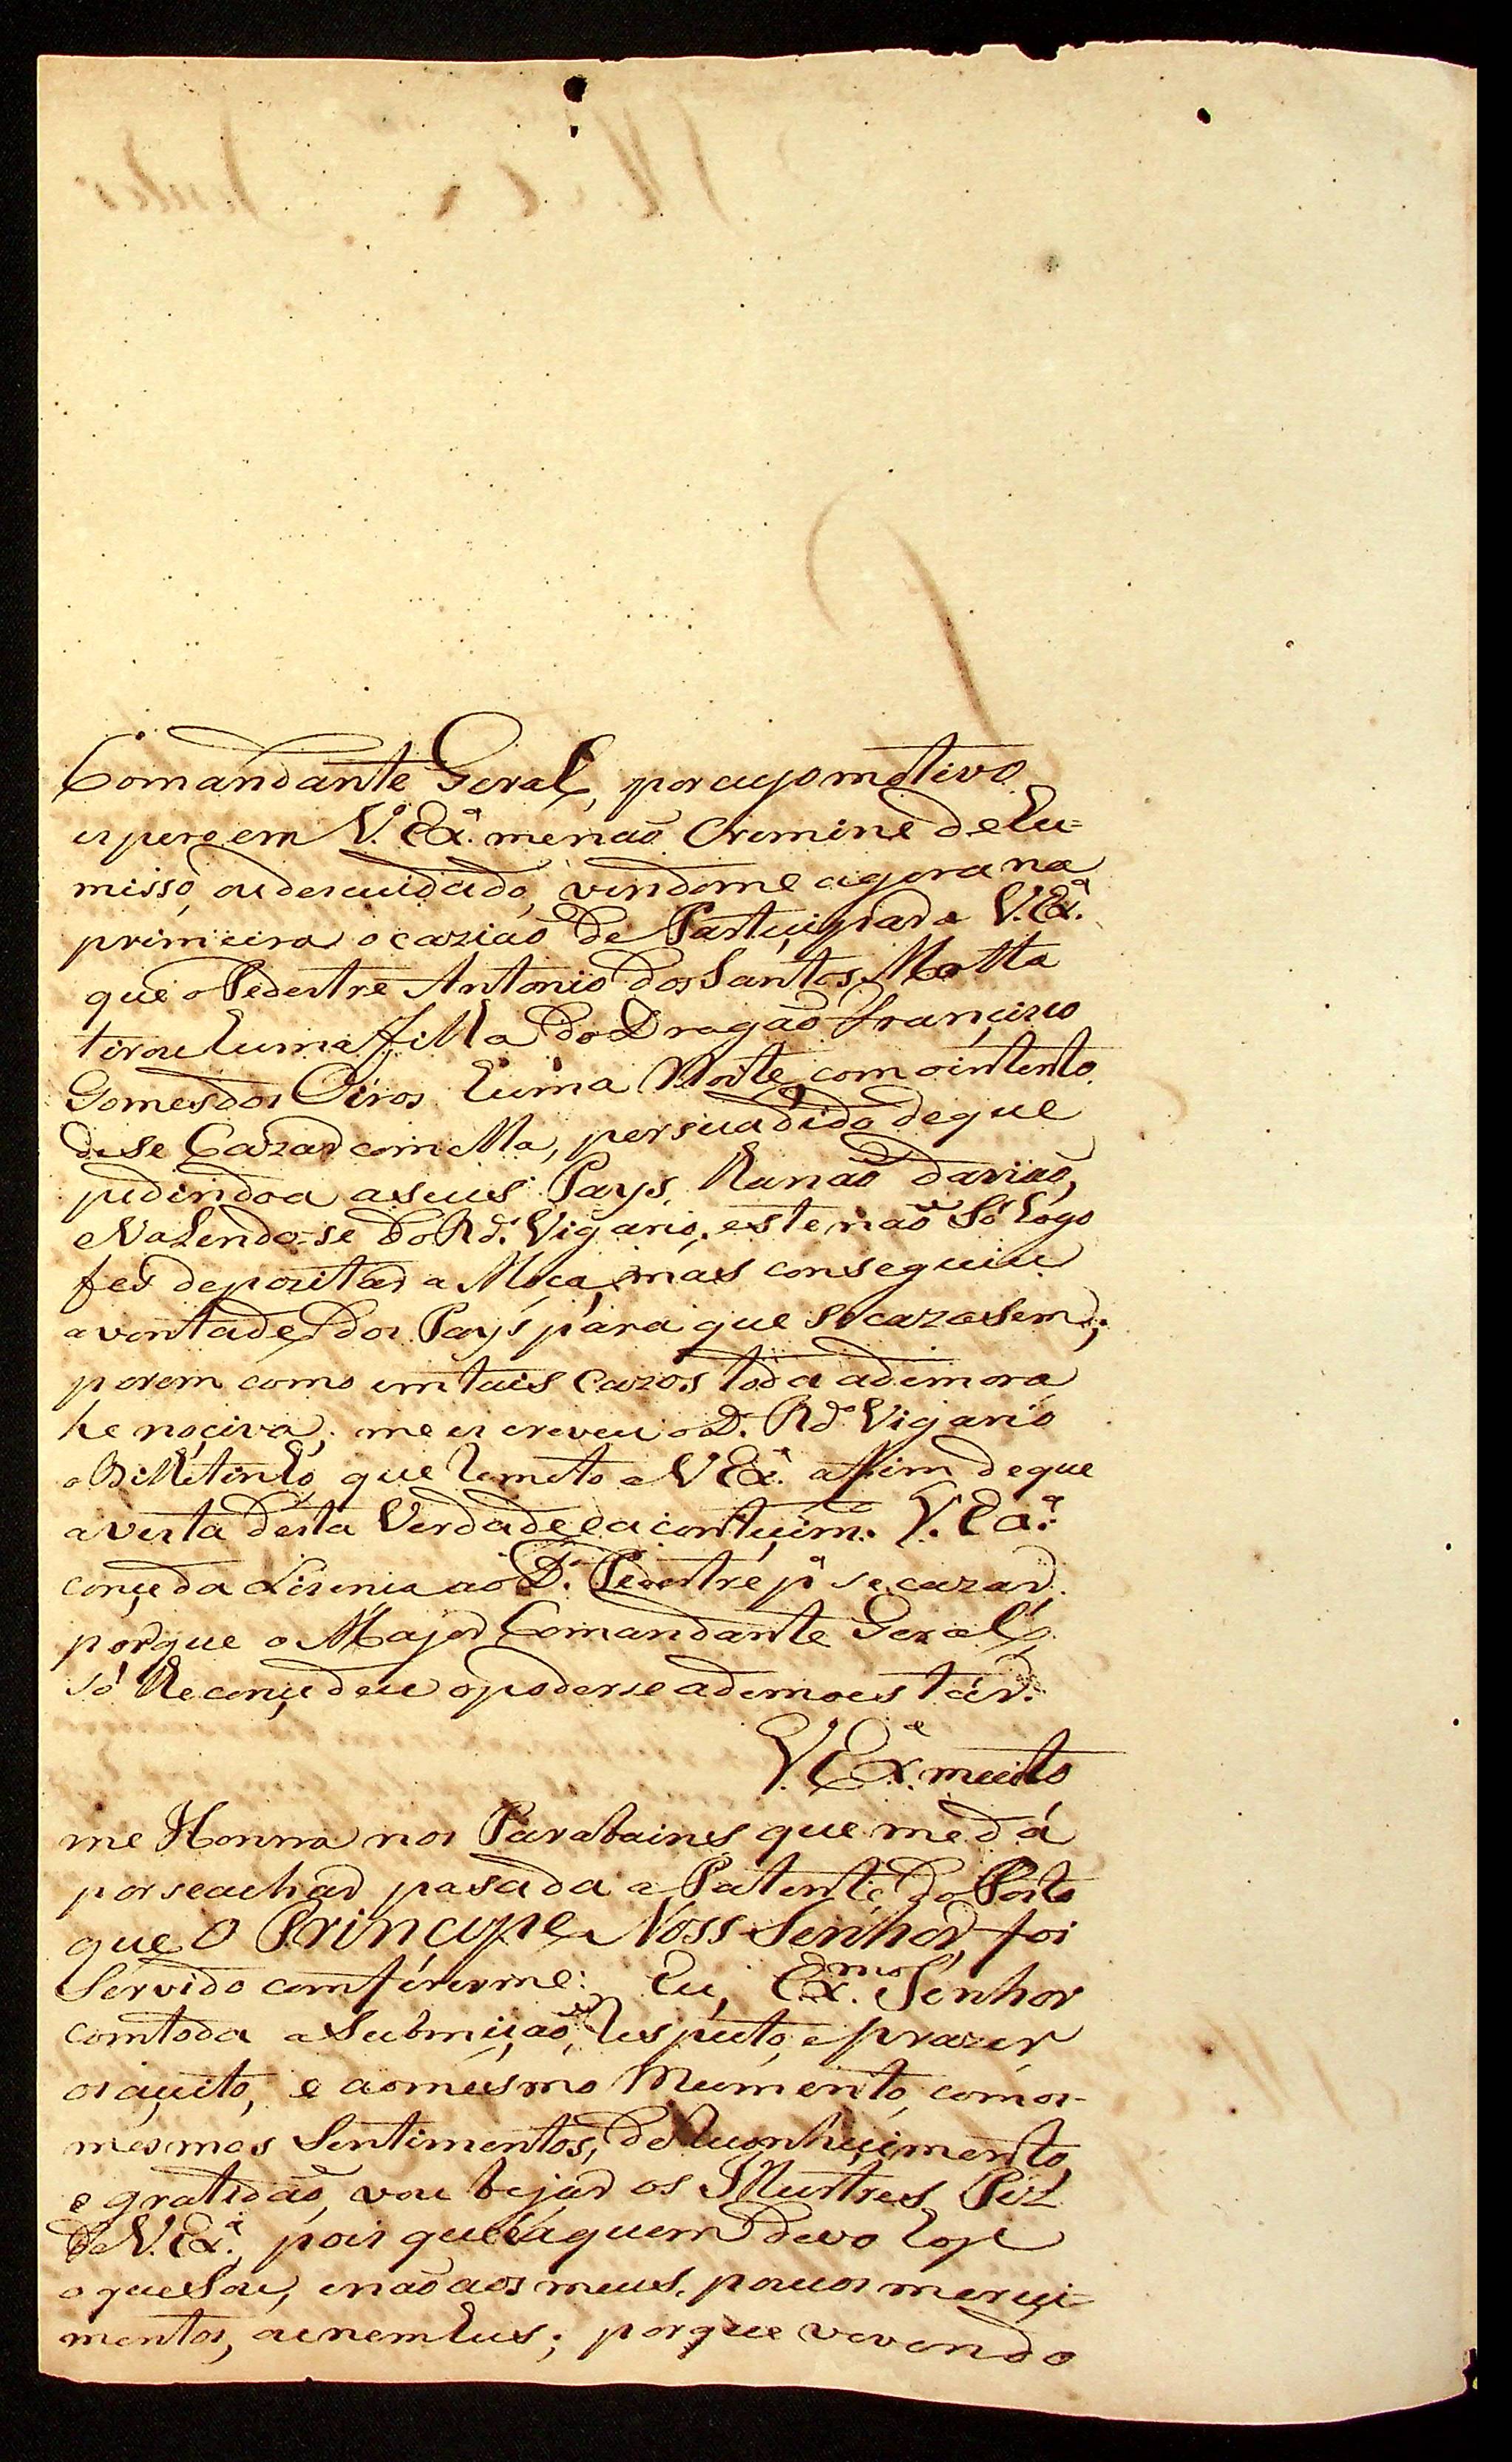 Comandante Geral, por cujo motivo
espero em V. Exª. me naõ Cremine de Re-
misso, ou descuidado, vendome agora na
primeira ocaziaõ de Parteçipar a V. Exª.
que o Pedestre Antonio dos Santos Motta
tirou huma filha do Dragaõ Françisco
Gomes dos Oiros huma Noite, com o intento
de se Cazar com ella, persuadido de que
pedindoa a seus Pays, lha naõ dariaõ,
e Valendo-se do Rdº. Vigario, este naõ Só logo
fes depozitar a Moça, mas conseguiu
a vontade dos Pays para que se cazasem;
porem como em tais Cazos toda a demora
he noçiva, me escreveu o Dº. Rdº Vigario
o Bilhetinho, que Remeto a V Exª. afim de que
a vista desta Verdade e da contheum. V. Exª.
conçeda Lisensa ao Dº. Pedestre pª se cazar.
porque o Major Comandante Geral,
só lhe conçedeu o poderse ademoestár.
V. Exª. muito
me Honrra nos Parabains que me dá
por se achar pasada a Patente do Posto
que O Prinçipe Nosso Senhor foi
Servido comferirme: Eu, Exmo. Senhor
com toda a Submiçaõ, Respeito, e prazer
os açeito, e ao mesmo Mumento, com os
mesmos Sentimentos, de Reconheçimento,
e gratidaõ, vou bejar os Illustres Pés
de V. Exª., pois que hé a quem devo hoje
o que Sou, e naõ aos meus poucos mereçi-
mentos, ou nemhus; porque vevendo